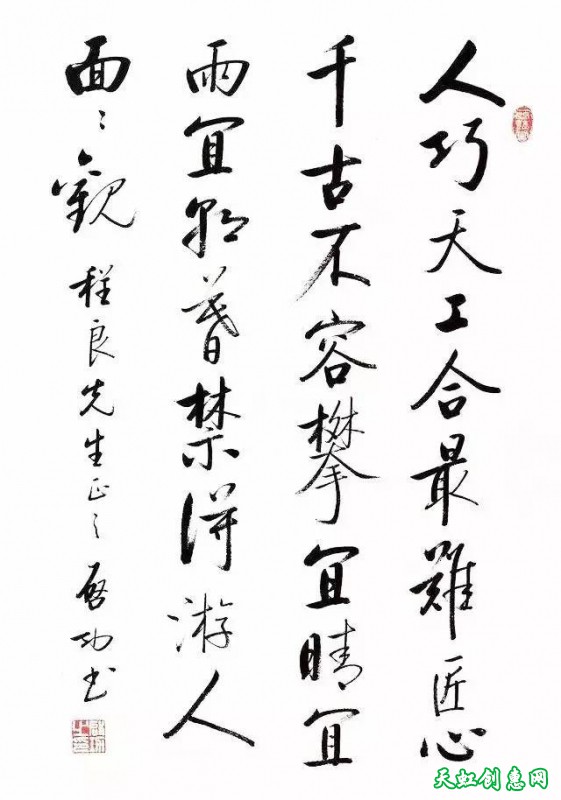 人巧天工合最難匠心
千古不容攀宜晴宜
雨宜朝暮禁得游人
面々觀 程良先生正之 啟功书
天虹创意网